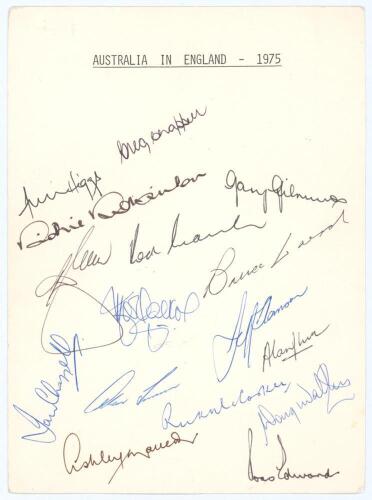 AUSTRALIA IN ENGLAND - 1975
Greg Chappell
Jim Higgs
Richie Robinson
Gary Gilmour
Rod Marsh
Bruce Laird
Jeff Thomson
Alan Turner
Ian Chappell
Rick McCosker
Doug Walters
Ashley Mallett
Ross Edwards